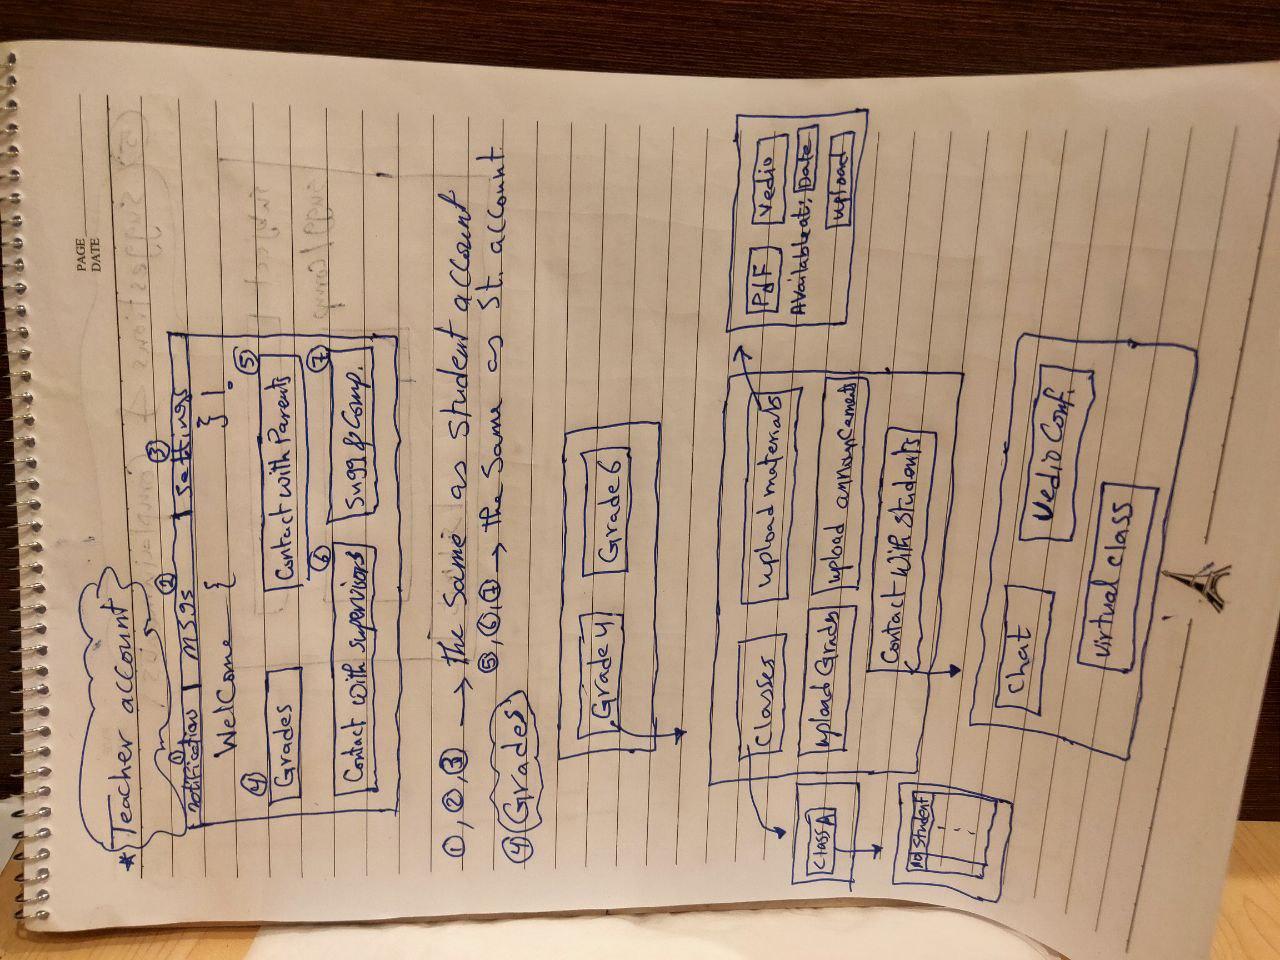 PAGE
DATE
* Teacher account
① ② ③
notification msgs settings
Welcome { } !
④ Grades ⑤ Contact with Parents
⑥ Contact with supervisors ⑦ Sugg & Comp.
①, ②, ③ → the same as student account
⑤, ⑥, ⑦ → the same as St. account
④ Grades
Grade 4 Grade 6
Classes upload materials
Upload Grades upload announcements
Contact with students
Pdf Vedio
Available at: Date
upload
Class A
no Student
Chat Vedio Conf.
Virtual class